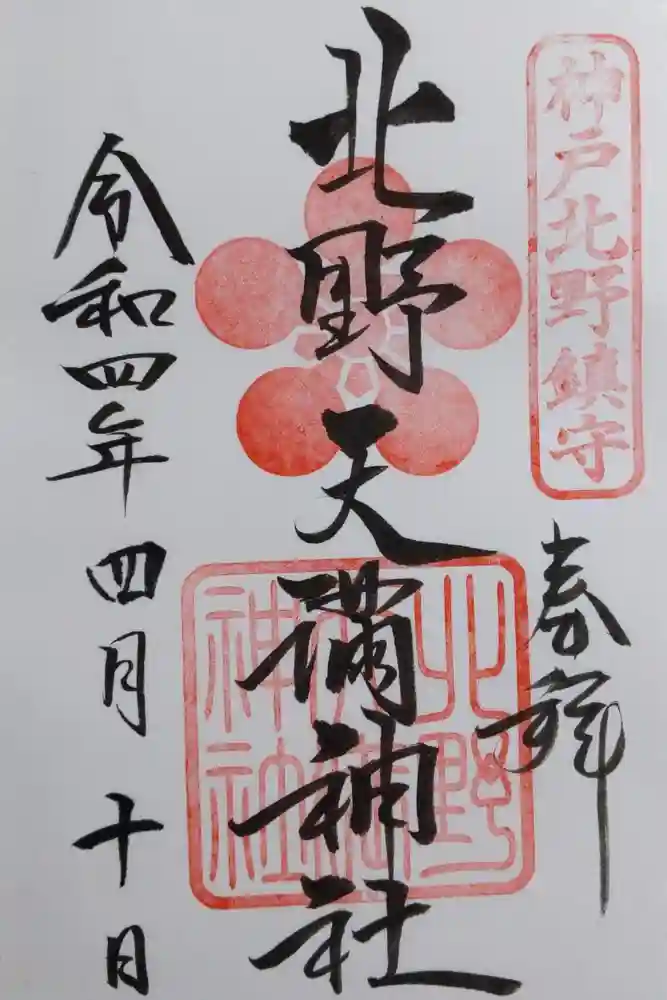 神戸北野鎮守
奉拝
北野天満神社
北野天満神社
令和四年四月十日